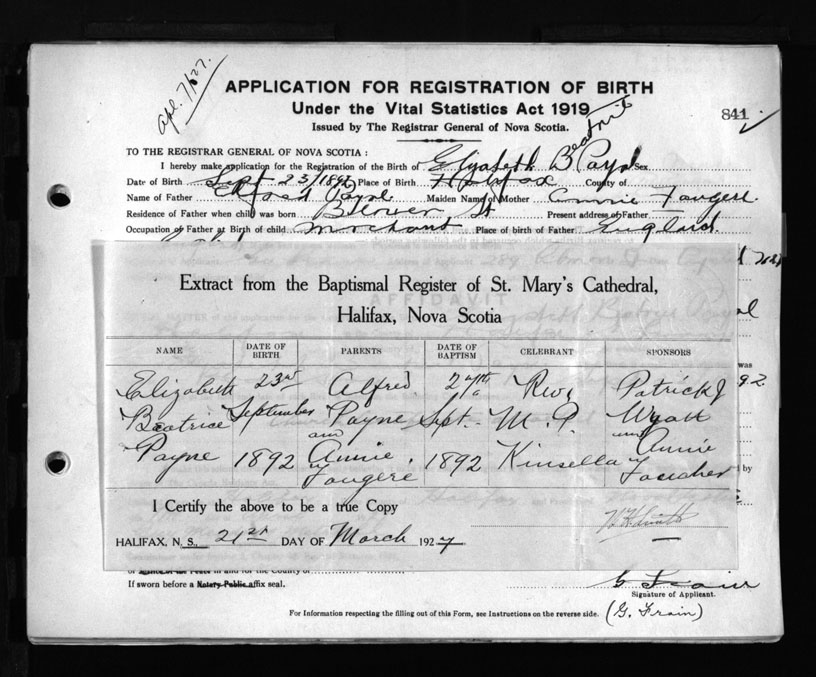 Apl. 7/27.
APPLICATION FOR REGISTRATION OF BIRTH
Under the Vital Statistics Act 1919
841
Issued by The Registrar General of Nova Scotia.
TO THE REGISTRAR GENERAL OF NOVA SCOTIA :
Beatrice
I hereby make application for the Registration of the Birth of Elizabeth B Payne Sex
Date of Birth Sept 23/1892 Place of Birth Halifax County of
Name of Father Alfred Payne Maiden Name of Mother Annie Fougere
Residence of Father when child was born Blowers St Present address of Father —
Occupation of Father at Birth of child Merchant Place of birth of Father England
AFFIDAVIT
Extract from the Baptismal Register of St. Mary's Cathedral,
Halifax, Nova Scotia
NAME DATE OF BIRTH PARENTS DATE OF BAPTISM CELEBRANT SPONSORS
Elizabeth 23rd Alfred 27th Rev. Patrick J
Beatrice September Payne Sept. M. P. Wyatt
and and
Payne 1892 Annie Fougere 1892 Kinsella Annie
was
92
by
I Certify the above to be a true Copy
HALIFAX, N. S. 21st DAY OF March 1927
in and for the County of
If sworn before a Notary Public affix seal.
G Frain
Signature of Applicant.
For Information respecting the filling out of this Form, see Instructions on the reverse side. (G. Frain)